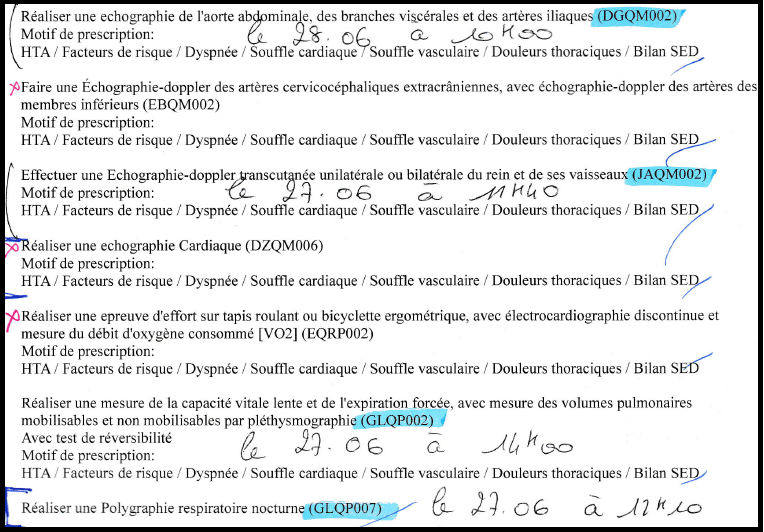 Réaliser une echographie de l'aorte abdominale, des branches viscérales et des artères iliaques (DGQM002)
Motif de prescription: le 28.06 à 10H00
HTA / Facteurs de risque / Dyspnée / Souffle cardiaque / Souffle vasculaire / Douleurs thoraciques / Bilan SED
Faire une Échographie-doppler des artères cervicocéphaliques extracrâniennes, avec échographie-doppler des artères des
membres inférieurs (EBQM002)
Motif de prescription:
HTA / Facteurs de risque / Dyspnée / Souffle cardiaque / Souffle vasculaire / Douleurs thoraciques / Bilan SED
Effectuer une Echographie-doppler transcutanée unilatérale ou bilatérale du rein et de ses vaisseaux (JAQM002)
Motif de prescription: le 27.06 à 11H40
HTA / Facteurs de risque / Dyspnée / Souffle cardiaque / Souffle vasculaire / Douleurs thoraciques / Bilan SED
Réaliser une echographie Cardiaque (DZQM006)
Motif de prescription:
HTA / Facteurs de risque / Dyspnée / Souffle cardiaque / Souffle vasculaire / Douleurs thoraciques / Bilan SED
Réaliser une epreuve d'effort sur tapis roulant ou bicyclette ergométrique, avec électrocardiographie discontinue et
mesure du débit d'oxygène consommé [VO2] (EQRP002)
Motif de prescription:
HTA / Facteurs de risque / Dyspnée / Souffle cardiaque / Souffle vasculaire / Douleurs thoraciques / Bilan SED
Réaliser une mesure de la capacité vitale lente et de l'expiration forcée, avec mesure des volumes pulmonaires
mobilisables et non mobilisables par pléthysmographie (GLQP002)
Avec test de réversibilité
Motif de prescription: le 27.06 à 14H00
HTA / Facteurs de risque / Dyspnée / Souffle cardiaque / Souffle vasculaire / Douleurs thoraciques / Bilan SED
Réaliser une Polygraphie respiratoire nocturne (GLQP007) le 27.06 à 12H10